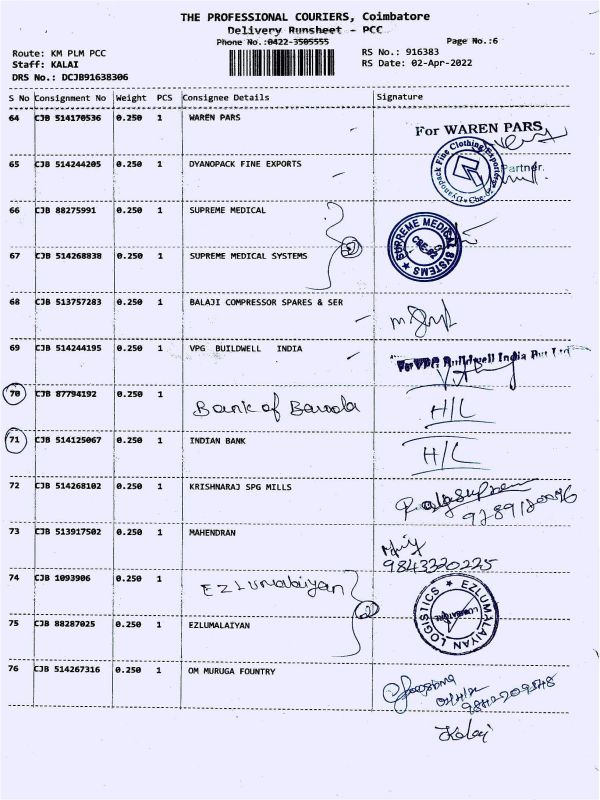 THE PROFESSIONAL COURIERS, Coimbatore
Delivery Runsheet - PCC
Phone No.:0422-3505555 Page No.:6
Route: KM PLM PCC RS No.: 916383
Staff: KALAI RS Date: 02-Apr-2022
DRS No.: DCJB91638306
S No Consignment No Weight PCS Consignee Details Signature
64 CJB 514170536 0.250 1 WAREN PARS For WAREN PARS
65 CJB 514244205 0.250 1 DYANOPACK FINE EXPORTS Partner.
66 CJB 88275991 0.250 1 SUPREME MEDICAL
67 CJB 514268838 0.250 1 SUPREME MEDICAL SYSTEMS SUPREME MEDICAL SYSTEMS
68 CJB 513757283 0.250 1 BALAJI COMPRESSOR SPARES & SER
69 CJB 514244195 0.250 1 VPG BUILDWELL INDIA For VPG Buildwell India Pvt Ltd
70 CJB 87794192 0.250 1 Bank of Baroda H/L
71 CJB 514125067 0.250 1 INDIAN BANK H/L
72 CJB 514268102 0.250 1 KRISHNARAJ SPG MILLS
73 CJB 513917502 0.250 1 MAHENDRAN
9843320225
74 CJB 1093906 0.250 1 EZLUMALAIYAN EZLUMALAIYAN LOGISTICS COIMBATORE
75 CJB 88287025 0.250 1 EZLUMALAIYAN 2
76 CJB 514267316 0.250 1 OM MURUGA FOUNTRY
Kalai